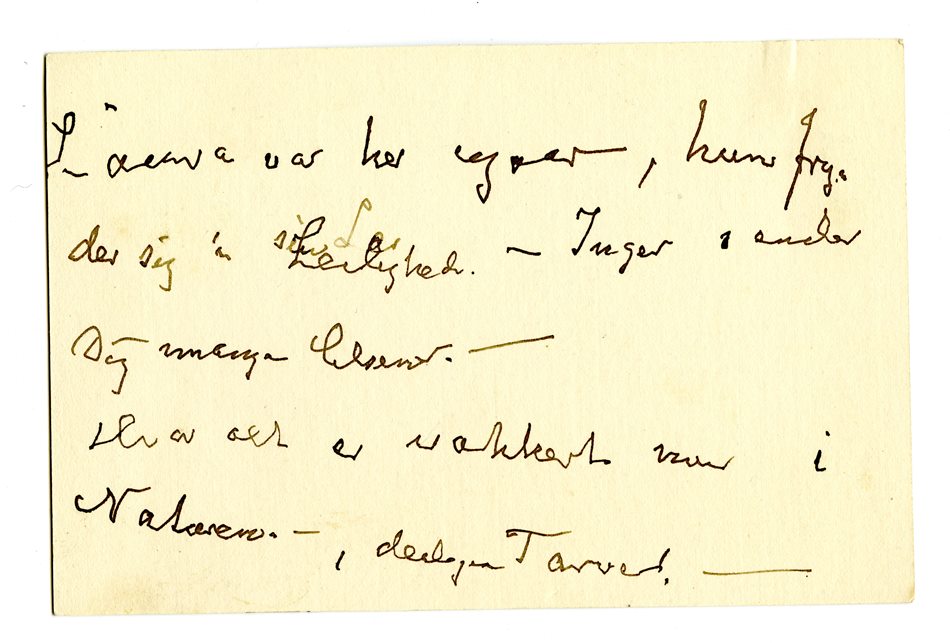 Laura var her igaar, hun fry-
der sig i sin Leilighed. – Inger sender
Dig mange hilsener. —
Hvor alt er vakkert nu i
Naturen. – , deilige Farver. —